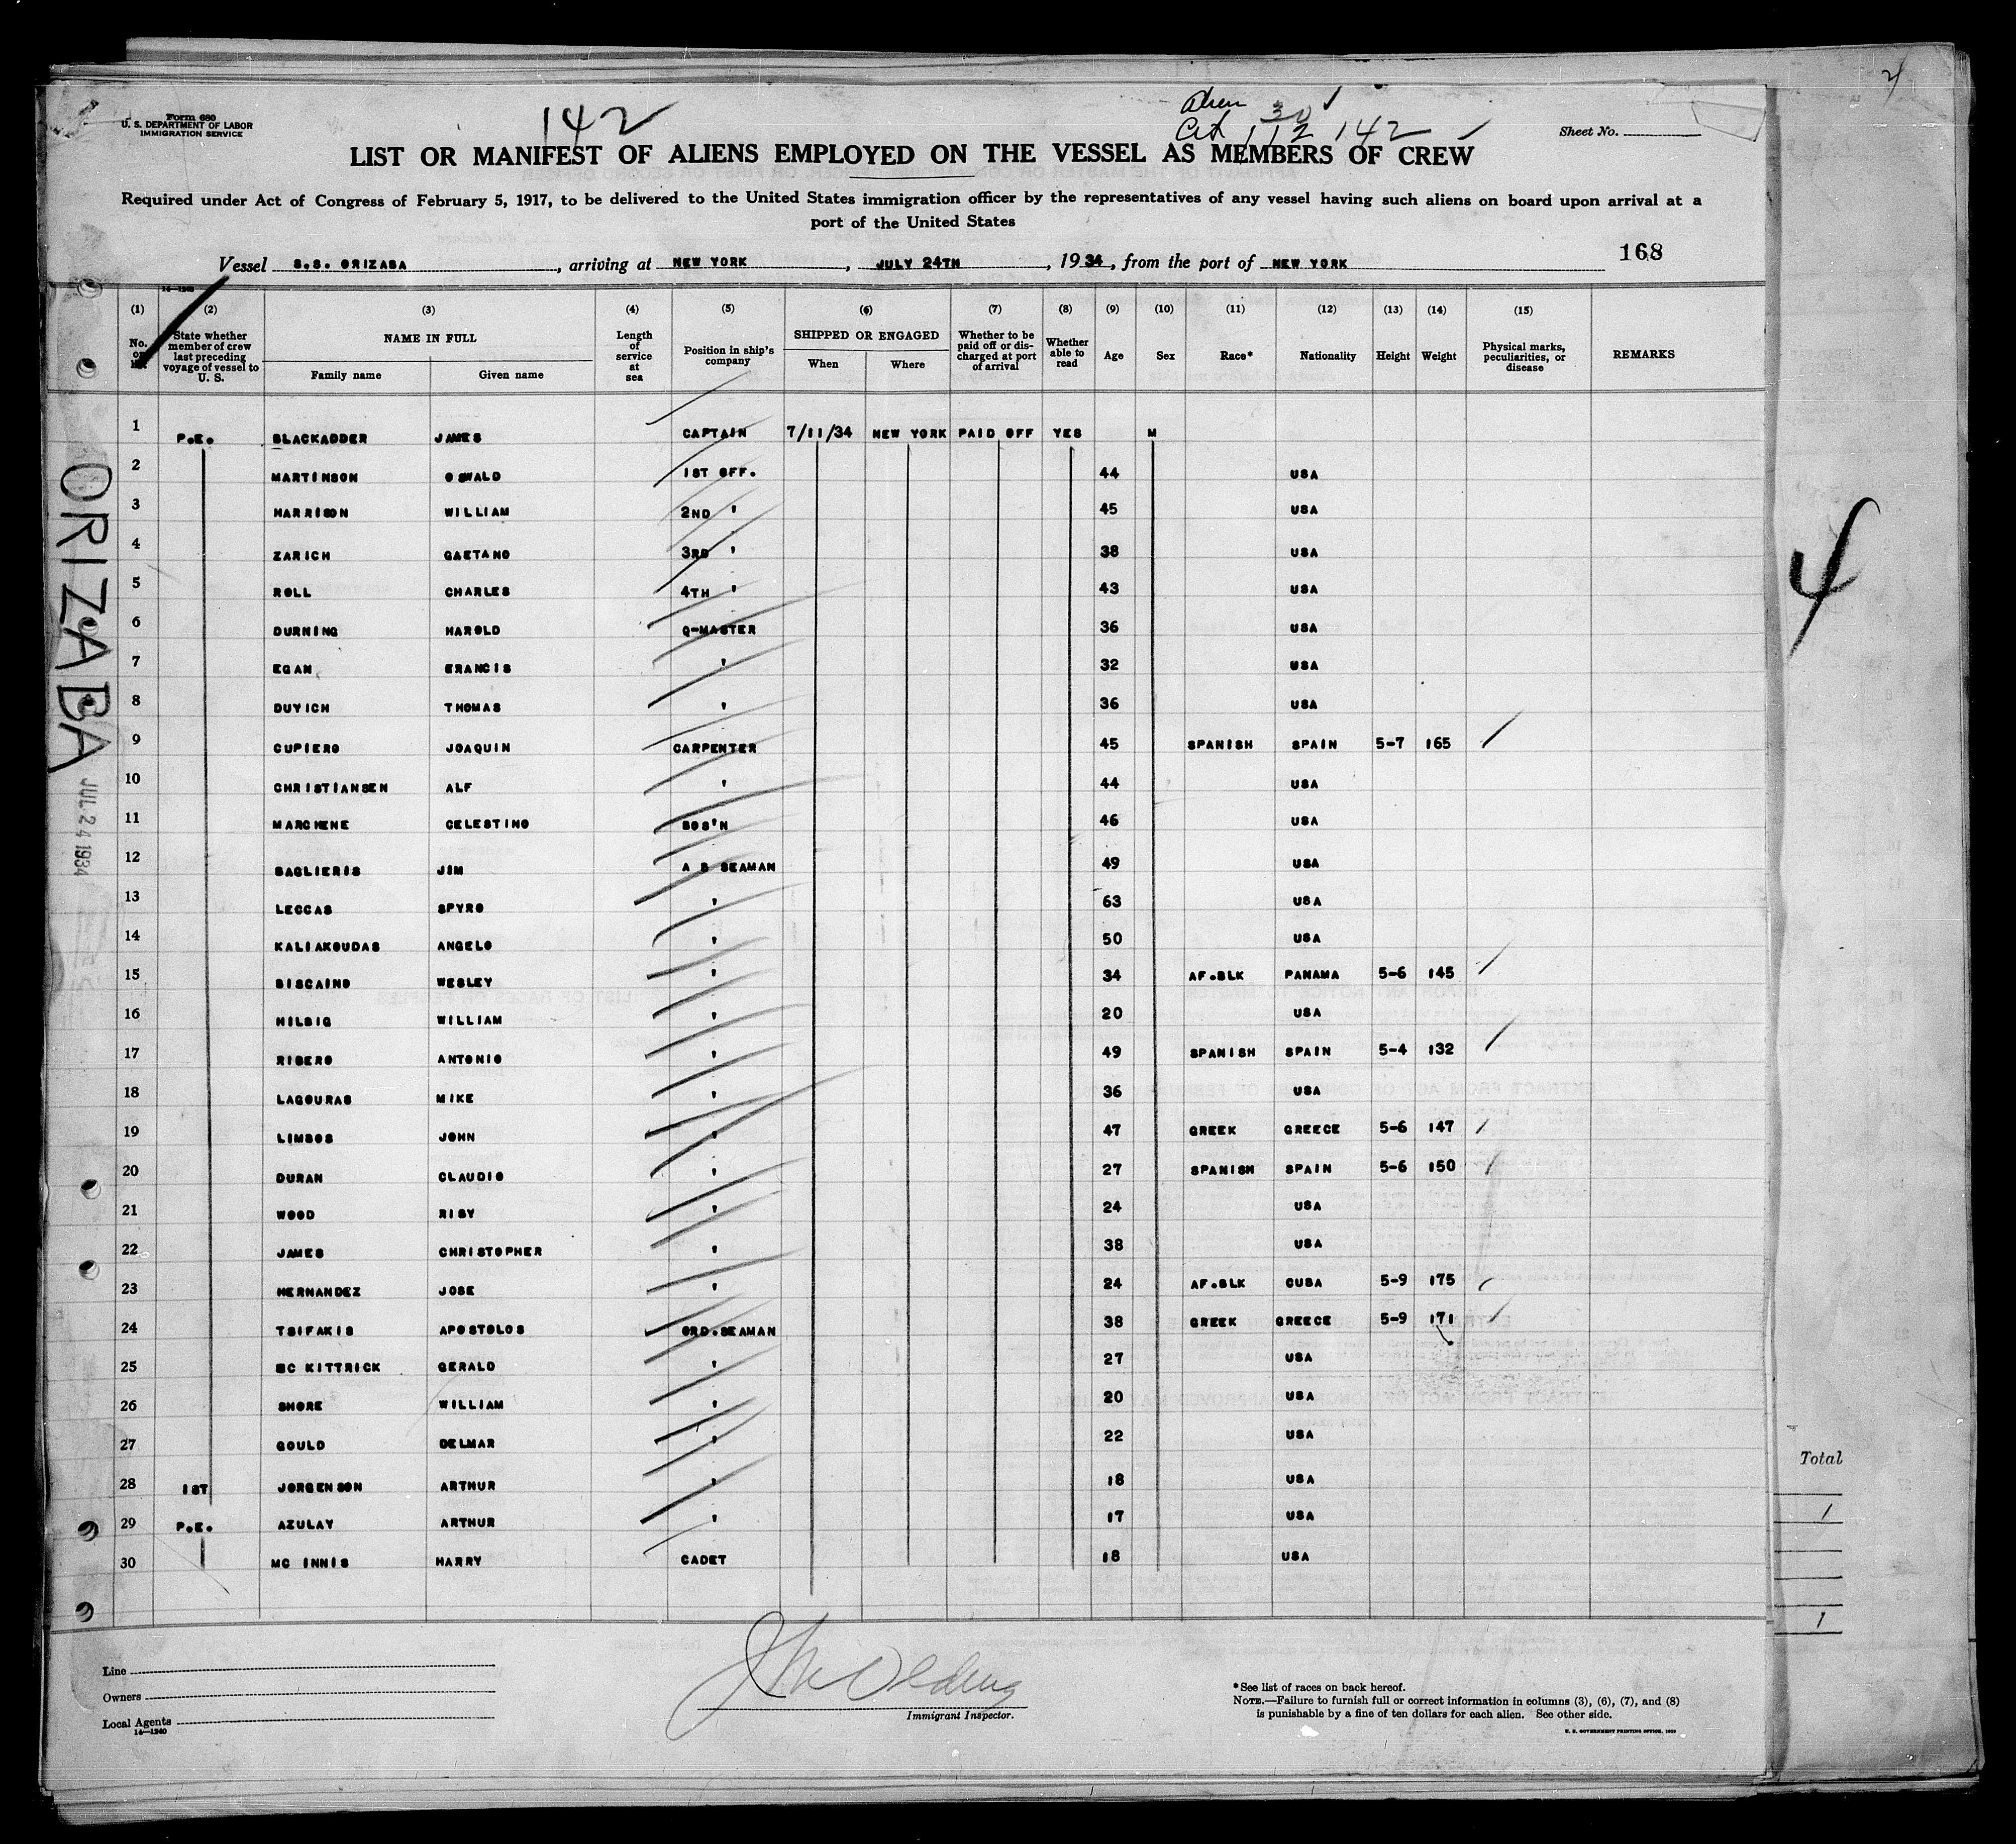 Form 680
U. S. DEPARTMENT OF LABOR
IMMIGRATION SERVICE
142
Alien 30
Cit 112 142
Sheet No.
LIST OR MANIFEST OF ALIENS EMPLOYED ON THE VESSEL AS MEMBERS OF CREW
Required under Act of Congress of February 5, 1917, to be delivered to the United States immigration officer by the representatives of any vessel having such aliens on board upon arrival at a
port of the United States
168
Vessel S.S. ORIZABA, arriving at NEW YORK, JULY 24TH, 1934, from the port of NEW YORK
14—1240
(1) (2) (3) (4) (5) (6) (7) (8) (9) (10) (11) (12) (13) (14) (15)
No. on
State whether member of crew last preceding voyage of vessel to U. S.
NAME IN FULL
Family name Given name
Length of service at sea
Position in ship's company
SHIPPED OR ENGAGED
When Where
Whether to be paid off or discharged at port of arrival
Whether able to read
Age Sex Race* Nationality Height Weight
Physical marks, peculiarities, or disease
REMARKS
1 P.E. BLACKADDER JAMES CAPTAIN 7/11/34 NEW YORK PAID OFF YES M
2 MARTINSON OSWALD 1ST OFF. 44 USA
3 HARRISON WILLIAM 2ND ' 45 USA
4 ZARICH GAETANO 3RD ' 38 USA
5 ROLL CHARLES 4TH ' 43 USA
6 DURNING HAROLD Q-MASTER 36 USA
7 EGAN FRANCIS ' 32 USA
8 DUYICH THOMAS ' 36 USA
9 CUPIERO JOAQUIN CARPENTER 45 SPANISH SPAIN 5-7 165
10 CHRISTIANSEN ALF ' 44 USA
11 MARCHENE CELESTINO BOS'N 46 USA
12 BAGLIERIS JIM A B SEAMAN 49 USA
13 LECCAS SPYRO ' 63 USA
14 KALIAKOUDAS ANGELO ' 50 USA
15 BISCAINO WESLEY ' 34 AF.BLK PANAMA 5-6 145
16 HILBIG WILLIAM ' 20 USA
17 RIBERO ANTONIO ' 49 SPANISH SPAIN 5-4 132
18 LAGOURAS MIKE ' 36 USA
19 LIMBOS JOHN ' 47 GREEK GREECE 5-6 147
20 DURAN CLAUDIO ' 27 SPANISH SPAIN 5-6 150
21 WOOD RIBY ' 24 USA
22 JAMES CHRISTOPHER ' 38 USA
23 HERNANDEZ JOSE ' 24 AF.BLK CUBA 5-9 175
24 TSIFAKIS APOSTOLOS ORD.SEAMAN 38 GREEK GREECE 5-9 171
25 MC KITTRICK GERALD ' 27 USA
26 SHORE WILLIAM ' 20 USA
27 GOULD DELMAR ' 22 USA
28 1ST JORGENSON ARTHUR ' 18 USA
29 P.E. AZULAY ARTHUR ' 17 USA
30 MC INNIS HARRY CADET 18 USA
ORIZABA
JUL 24 1934
4
Total
1
1
Line
Owners
Local Agents
14—1240
Immigrant Inspector.
*See list of races on back hereof.
NOTE.—Failure to furnish full or correct information in columns (3), (6), (7), and (8)
is punishable by a fine of ten dollars for each alien. See other side.
U. S. GOVERNMENT PRINTING OFFICE. 1929